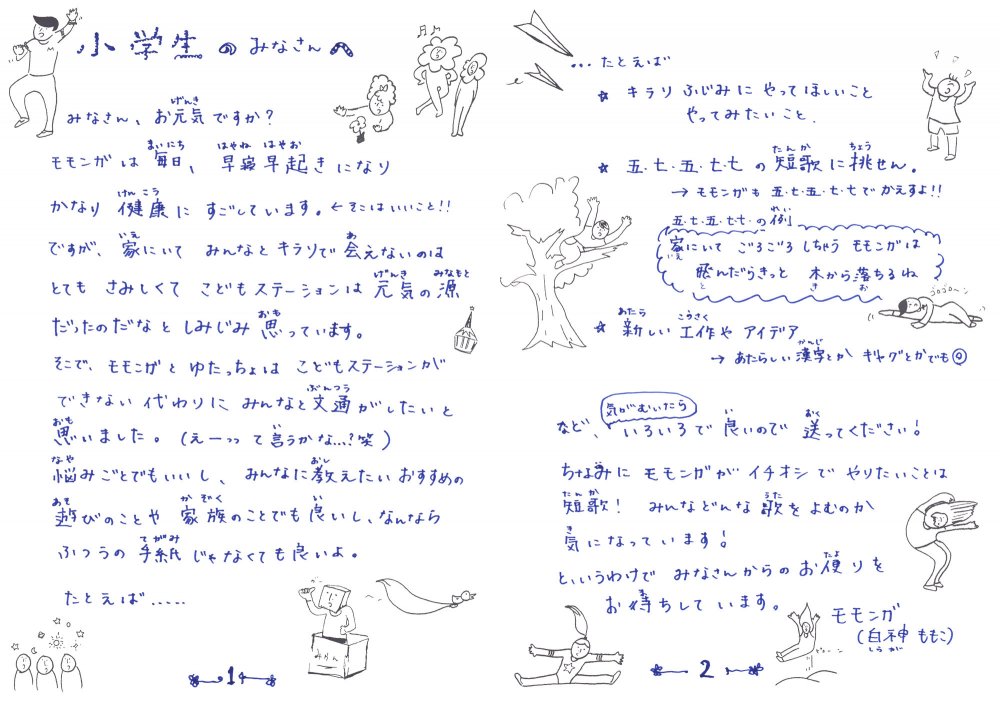 小学生のみなさんへ
みなさん、お元気ですか？
モモンガは毎日、早寝早起きになり
かなり健康にすごしています。←そこはいいこと!!
ですが、家にいてみんなとキラリで会えないのは
とてもさみしくてこどもステーションは元気の源
だったのだなとしみじみ思っています。
そこで、モモンガとゆたっちょはこどもステーションが
できない代わりにみんなと文通がしたいと
思いました。(えーっって言うかな…?笑)
悩みごとでもいいし、みんなに教えたいおすすめの
遊びのことや家族のことでも良いし、なんなら
ふつうの手紙じゃなくても良いよ。
たとえば……
みかん
1
…たとえば
☆ キラリふじみにやってほしいこと
やってみたいこと.
☆ 五・七・五・七・七の短歌に挑せん。
→モモンガも五・七・五・七・七でかえすよ!!
五・七・五・七・七の例
家にいてごろごろしちゃうモモンガは
飛んだらきっと木から落ちるね
ゴロゴローン
☆ 新しい工作やアイデア
→あたらしい漢字とかギャグとかでも◎
気がむいたら
など、いろいろで良いので送ってください！
ちなみにモモンガがイチオシでやりたいことは
短歌！みんなどんな歌をよむのか
気になっています！
というわけでみなさんからのお便りを
お待ちしています。
モモンガ
(白神ももこ)
2